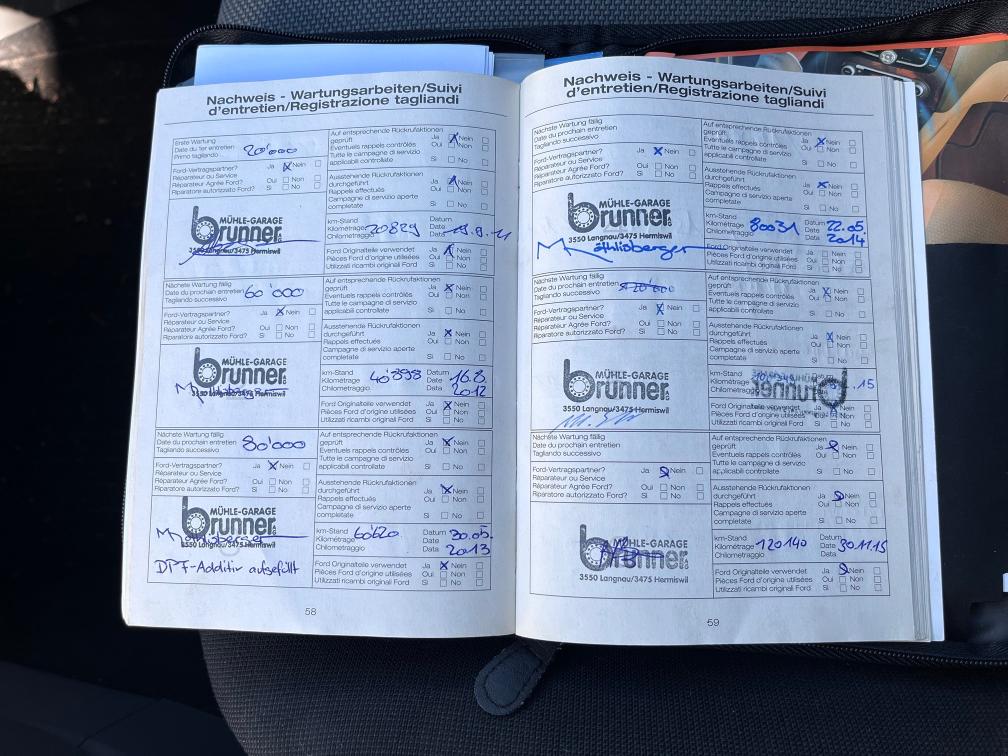 Nachweis - Wartungsarbeiten/Suivi
d'entretien/Registrazione tagliandi
Erste Wartung
Date du 1er entretien
Primo tagliando
20'000
Ford-Vertragspartner? Ja X Nein
Réparateur ou Service
Réparateur Agrée Ford? Oui Non
Riparatore autorizzato Ford? Si No
Auf entsprechende Rückrufaktionen
geprüft Ja X Nein
Eventuels rappels contrôlés Oui Non
Tutte le campagne di servizio
applicabili controllate Si No
Ausstehende Rückrufaktionen
durchgeführt Ja X Nein
Rappels effectués Oui Non
Campagne di servizio aperte
completate Si No
MÜHLE-GARAGE
brunner
3550 Langnau/3475 Hermiswil
km-Stand
Kilométrage 20829
Chilometraggio
Datum
Date
Data
Ford Originalteile verwendet Ja X Nein
Pièces Ford d'origine utilisées Oui Non
Utilizzati ricambi originali Ford Si No
Nächste Wartung fällig
Date du prochain entretien 60'000
Tagliando successivo
Ford-Vertragspartner? Ja X Nein
Réparateur ou Service
Réparateur Agrée Ford? Oui Non
Riparatore autorizzato Ford? Si No
Auf entsprechende Rückrufaktionen
geprüft Ja X Nein
Eventuels rappels contrôlés Oui Non
Tutte le campagne di servizio
applicabili controllate Si No
Ausstehende Rückrufaktionen
durchgeführt Ja X Nein
Rappels effectués Oui Non
Campagne di servizio aperte
completate Si No
MÜHLE-GARAGE
brunner
3550 Langnau/3475 Hermiswil
km-Stand
Kilométrage 40'898
Chilometraggio
Datum 16.8.
Date 2012
Data
Ford Originalteile verwendet Ja X Nein
Pièces Ford d'origine utilisées Oui Non
Utilizzati ricambi originali Ford Si No
Nächste Wartung fällig
Date du prochain entretien 80'000
Tagliando successivo
Ford-Vertragspartner? Ja X Nein
Réparateur ou Service
Réparateur Agrée Ford? Oui Non
Riparatore autorizzato Ford? Si No
Auf entsprechende Rückrufaktionen
geprüft Ja X Nein
Eventuels rappels contrôlés Oui Non
Tutte le campagne di servizio
applicabili controllate Si No
Ausstehende Rückrufaktionen
durchgeführt Ja X Nein
Rappels effectués Oui Non
Campagne di servizio aperte
completate Si No
MÜHLE-GARAGE
brunner
3550 Langnau/3475 Hermiswil
DPF-Additiv aufgefüllt
km-Stand
Kilométrage 60'620
Chilometraggio
Datum 30.05.
Date 2013
Data
Ford Originalteile verwendet Ja X Nein
Pièces Ford d'origine utilisées Oui Non
Utilizzati ricambi originali Ford Si No
58
Nachweis - Wartungsarbeiten/Suivi
d'entretien/Registrazione tagliandi
Nächste Wartung fällig
Date du prochain entretien
Tagliando successivo
Ford-Vertragspartner? Ja X Nein
Réparateur ou Service
Réparateur Agrée Ford? Oui Non
Riparatore autorizzato Ford? Si No
Auf entsprechende Rückrufaktionen
geprüft Ja X Nein
Eventuels rappels contrôlés Oui Non
Tutte le campagne di servizio
applicabili controllate Si No
Ausstehende Rückrufaktionen
durchgeführt Ja X Nein
Rappels effectués Oui Non
Campagne di servizio aperte
completate Si No
MÜHLE-GARAGE
brunner
3550 Langnau/3475 Hermiswil
km-Stand
Kilométrage 80031
Chilometraggio
Datum 22.05.
Date 2014
Data
Ford Originalteile verwendet Ja Nein
Pièces Ford d'origine utilisées Oui Non
Utilizzati ricambi originali Ford Si No
Nächste Wartung fällig
Date du prochain entretien
Tagliando successivo
Ford-Vertragspartner? Ja X Nein
Réparateur ou Service
Réparateur Agrée Ford? Oui Non
Riparatore autorizzato Ford? Si No
Auf entsprechende Rückrufaktionen
geprüft Ja X Nein
Eventuels rappels contrôlés Oui Non
Tutte le campagne di servizio
applicabili controllate Si No
Ausstehende Rückrufaktionen
durchgeführt Ja X Nein
Rappels effectués Oui Non
Campagne di servizio aperte
completate Si No
MÜHLE-GARAGE
brunner
3550 Langnau/3475 Hermiswil
km-Stand
Kilométrage
Chilometraggio
.15
Ford Originalteile verwendet Ja Nein
Pièces Ford d'origine utilisées Oui Non
Utilizzati ricambi originali Ford Si No
Nächste Wartung fällig
Date du prochain entretien
Tagliando successivo
Ford-Vertragspartner? Ja Nein
Réparateur ou Service
Réparateur Agrée Ford? Oui Non
Riparatore autorizzato Ford? Si No
Auf entsprechende Rückrufaktionen
geprüft Ja Nein
Eventuels rappels contrôlés Oui Non
Tutte le campagne di servizio
applicabili controllate Si No
Ausstehende Rückrufaktionen
durchgeführt Ja Nein
Rappels effectués Oui Non
Campagne di servizio aperte
completate Si No
MÜHLE-GARAGE
brunner
3550 Langnau/3475 Hermiswil
km-Stand
Kilométrage 120140
Chilometraggio
Datum
Date 30.11.15
Data
Ford Originalteile verwendet Ja Nein
Pièces Ford d'origine utilisées Oui Non
Utilizzati ricambi originali Ford Si No
59